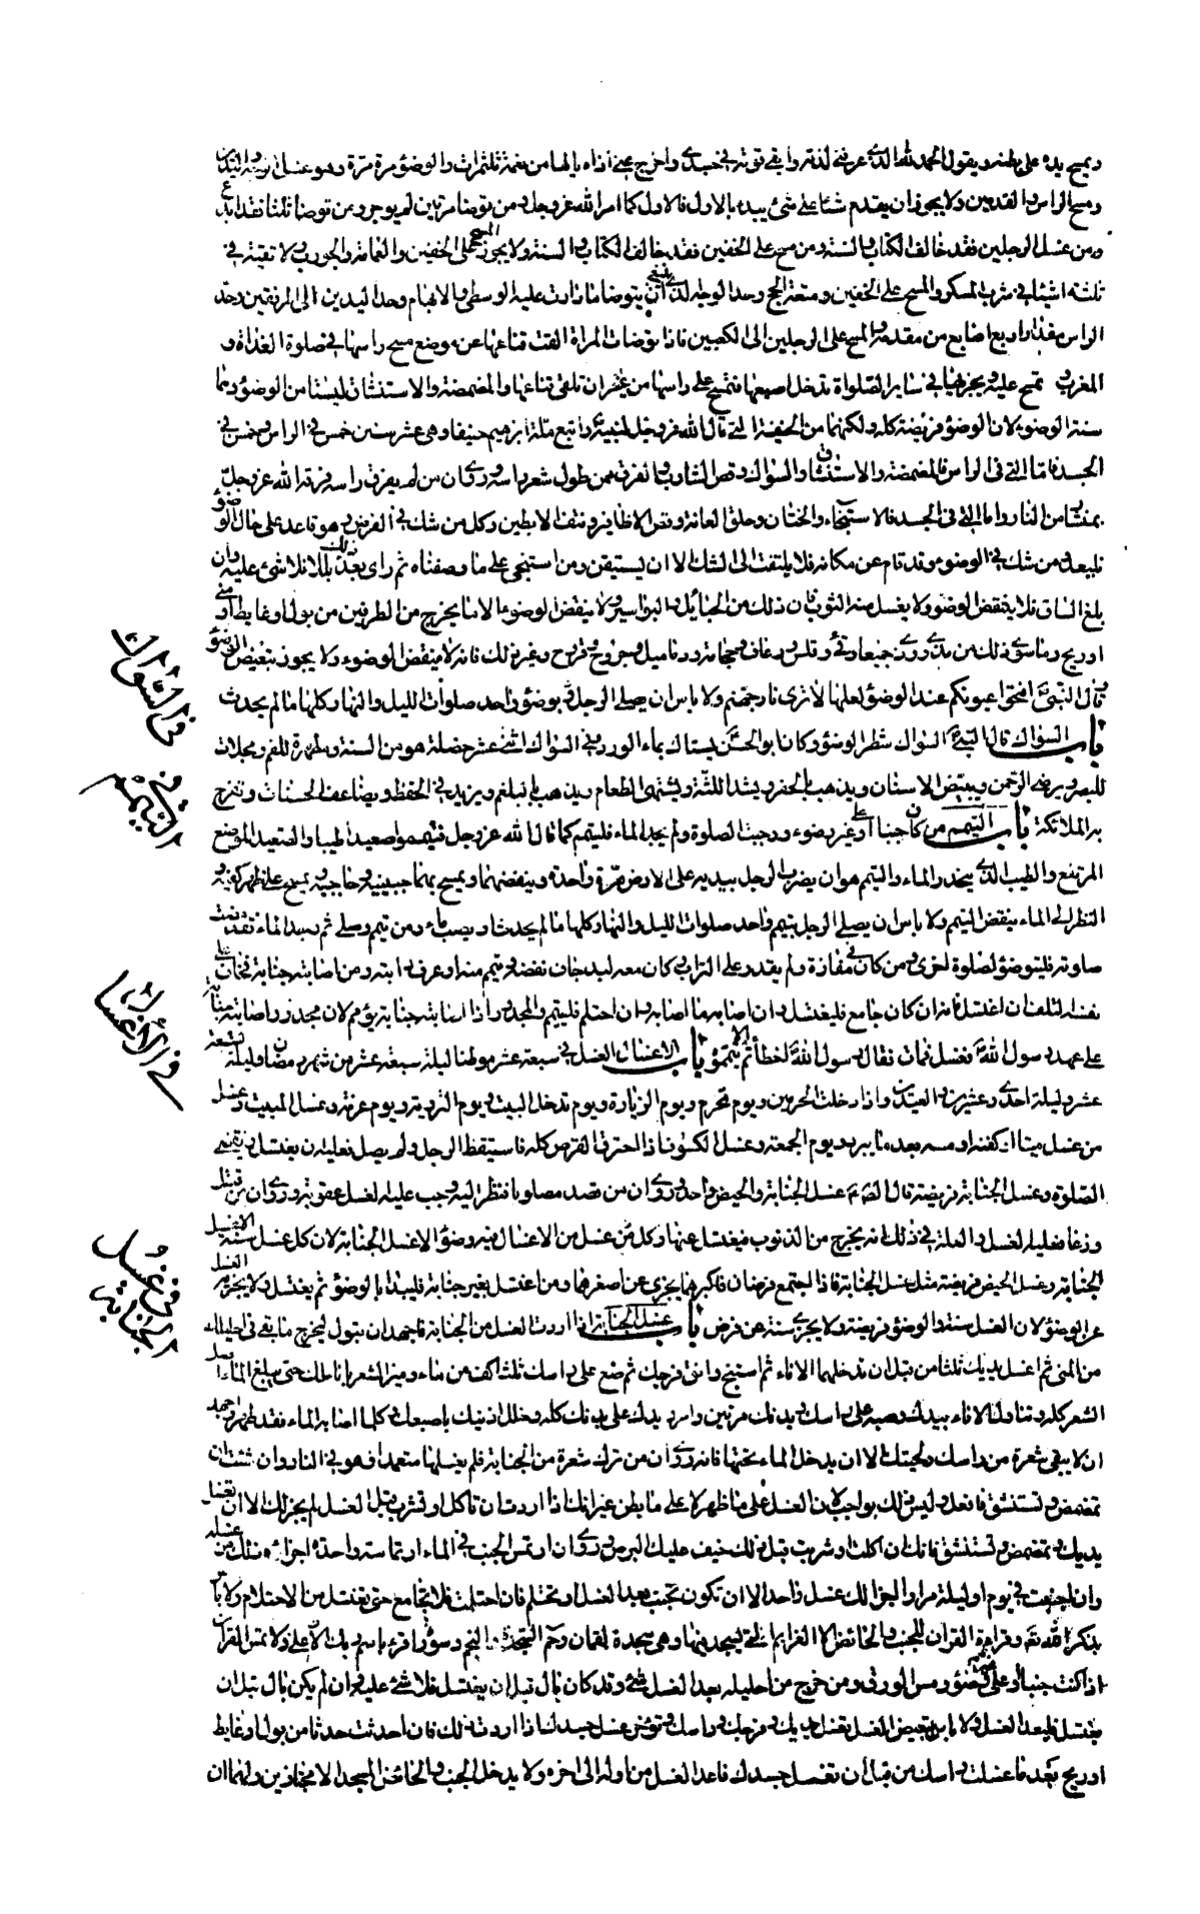 ويمسح يده على بطنه ويقول الحمد لله الذي عرفني لذته وابقى قوته في جسدي واخرج عني اذاه يالها من نعمة ثلث مرات والوضؤ مرة مرة وهو غسل الوجه واليدين
ومسح الراس والقدمين ولا يجوز ان يقدم شيئا على شئ يبدء بالاول فالاول كما امر الله عز وجل ومن توضا مرتين لم يوجر ومن توضا ثلثا فقد ابدع
ومن غسل الرجلين فقد خالف الكتاب والسنة ومن مسح على الخفين فقد خالف الكتاب والسنة ولا يجوز المسح على الخفين والعمامة والجورب ولا تقية في
ثلثة اشياء في شرب المسكر والمسح على الخفين ومتعة الحج وحد الوجه الذي ينبغي ان يتوضا ما دارت عليه الوسطى والابهام وحد اليدين الى المرفقين وحد
الراس مقدار اربع اصابع من مقدمه والمسح على الرجلين الى الكعبين فاذا توضات المراة القت قناعها عن موضع مسح راسها في صلوة الغداة و
المغرب وتمسح عليه ويجزيها في ساير الصلواة تدخل اصبعها فتمسح على راسها من غير ان تلقى قناعها والمضمضة والاستنشاق ليستا من الوضؤ وهما
سنة الوضوء لان الوضؤ فريضة كله ولكنهما من الحنيفية التي قال الله عز وجل لنبيه واتبع ملة ابرهيم حنيفا وهى عشر سنن خمس في الراس وخمس في
الجسد فاما التي في الراس فالمضمضة والاستنشاق والسؤاك وقص الشارب والفرق لمن طول شعر راسه وروى ان من لم يفرق راسه فرقه الله عز وجل
بمنشار من النار واما التي في الجسد فالاستنجاء والختان وحلق العانة وقص الاظافير ونتف الابطين وكل من شك في الفرض وهو قاعد على حال الوضؤ
فليعد ومن شك في الوضوء وقد قام عن مكانه فلا يلتفت الى الشك الا ان يستيقن ومن استنجى على ما وصفناه ثم راى بعد ذلك بللا فلا شئ عليه وان
بلغ الساق فلا ينقض الوضوء ولا يغسل منه الثوب فان ذلك من الحبائل والبواسير ولا ينقض الوضوء الا ما يخرج من الطرفين من بول او غايط او منى
او ريح وما سوى ذلك من مذى وودى جميعا وقئ وقلس ورعاف وحجامة ودماميل وجروح وقروح وغير ذلك فانه لا ينقض الوضوء ولا يجوز تبعيض الوضؤ
وقال النبي افتحوا عيونكم عند الوضؤ لعلها لا ترى نار جهنم ولا باس ان يصلي الرجل بوضؤ واحد صلوات الليل والنهار كلها ما لم يحدث
باب السؤاك قال النبي السؤاك شطر الوضؤ وكان ابو الحسن يستاك بماء الورد وفي السؤاك اثنى عشر خصلة هو من السنة ومطهرة للفم ومجلات
للبصر ويرضى الرحمن ويبيض الاسنان ويذهب بالحفر ويشد اللثة ويشتهى الطعام ويذهب بالبلغم ويزيد في الحفظ ويضاعف الحسنات وتفرح
به الملائكة باب التيمم من كان جنبا او على غير وضوء ووجبت الصلوة ولم يجد الماء فليتيمم كما قال الله عز وجل فتيمموا صعيدا طيبا والصعيد الموضع
المرتفع والطيب الذي ينحدر الماء والتيمم هو ان يضرب الرجل بيديه على الارض مرة واحدة وينفضهما ويمسح بهما جبينيه وحاجبيه ويمسح على ظهر كفيه و
النظر الى الماء ينقض التيمم ولا باس ان يصلي الرجل بتيمم واحد صلوات الليل والنهار كلها ما لم يحدث او يصب ماء ومن تيمم وصلى ثم وجد الماء فقد مضت
صلوته فليتوضؤ لصلوة اخرى ومن كان في مفازة ولم يقدر على التراب وكان معه لبد جاف نفضه وتيمم منه او عرف دابته ومن اصابته جنابة فخاف على
نفسه التلف ان اغتسل فانه ان كان جامع فليغتسل وان اصابه ما اصابه وان احتلم فليتيمم والمجدور اذا اصابته جنابة يؤمم لان مجدورا اصابته جنابة
على عهد رسول الله فغسل فمات فقال رسول الله اخطأتم الا يممتمؤه باب الاغسال الغسل في سبعة عشر موطنا ليلة سبعة عشر من شهر رمضان وليلة تسعة
عشر وليلة احدى وعشرين والعيدين واذا دخلت الحرمين ويوم تحرم ويوم الزيارة ويوم تدخل البيت ويوم التروية ويوم عرفة وغسل الميت وغسل
من غسل ميتا او كفنه او مسه بعد ما يبرد ويوم الجمعة وغسل الكسوف اذا احترق القرص كله فاستيقظ الرجل ولم يصل فعليه ان يغتسل ويقضى
الصلوة وغسل الجنابة فريضة قال الصادق غسل الجنابة والحيض واحد وروى ان من قصد مصلوبا فنظر اليه وجب عليه الغسل عقوبة وروى ان من قتل
وزغا فعليه الغسل والعلة في ذلك انه يخرج من الذنوب فيغتسل عنها وكل غسل من الاغسال فيه وضؤ الا غسل الجنابة لان كل غسل سنة الا غسل
الجنابة وغسل الحيض فريضة مثل غسل الجنابة فاذا اجتمع فرضان فاكبرهما يجزى عن اصغرهما ومن اغتسل بغير جنابة فليبدا بالوضؤ ثم يغتسل ولا يجزيه الغسل
عن الوضؤ لان الغسل سنة والوضؤ فريضة ولا يجزى سنة عن فرض باب غسل الجنابة اذا اردت الغسل من الجنابة فاجهد ان تبول ليخرج ما بقى في احليلك
من المنى ثم اغسل يديك ثلثا من قبل ان تدخلهما الاناء ثم استنج وانق فرجك ثم ضع على راسك ثلث اكف من ماء وميز الشعر باناملك حتى يبلغ الماء اصل
الشعر كله وتناول الاناء بيدك وصبه على راسك وبدنك مرتين وامرر يدك على بدنك كله وخلل اذنيك باصبعك وكلما اصابه الماء فقد طهر واجهد
ان لا يبقى شعرة من راسك ولحيتك الا ان يدخل الماء تحتها فانه روى ان من ترك شعرة من الجنابة فلم يغسلها متعمدا فهو في النار وان شئت ان
تمضمض وتستنشق فافعل وليس ذلك بواجب لان الغسل على ما ظهر لا على ما بطن غير انك اذا اردت ان تاكل او تشرب قبل الغسل لم يجز لك الا ان تغسل
يديك وتمضمض وتستنشق فانك ان اكلت او شربت قبل ذلك خيف عليك البرص وروى ان ارتمس الجنب في الماء ارتماسة واحدة اجزاه ذلك من غسله
وان اجنبت في يوم او ليلة مرارا اجزالك غسل واحد الا ان تكون تجنب بعد الغسل او تحتلم فان احتلمت فلا تجامع حتى تغتسل من الاحتلام ولا باس
بذكر الله وقراءة القران للجنب والحائض الا العزايم التي يسجد فيها وهى سجدة لقمان وحم السجدة والنجم وسورة اقرء باسم ربك الاعلى ولا تمس القران
اذا كنت جنبا او على غير وضؤ ومس الورق ومن خرج من احليله بعد الغسل شئ وقد كان بال قبل ان يغتسل فلا شئ عليه وان لم يكن بال قبل ان
يغتسل فليعد الغسل ولا باس بتبعيض الغسل تغسل يديك وفرجك وراسك وتؤخر غسل جسدك اذا اردت ذلك فان احدثت حدثا من بول او غايط
او ريح بعد ما غسلت راسك من قبل ان تغسل جسدك فاعد الغسل من اوله الى اخره ولا يدخل الجنب والحائض المسجد الا مجتازين ولهما ان
في السؤاك
في التيمم
في الاغسال
في غسل الجنابة